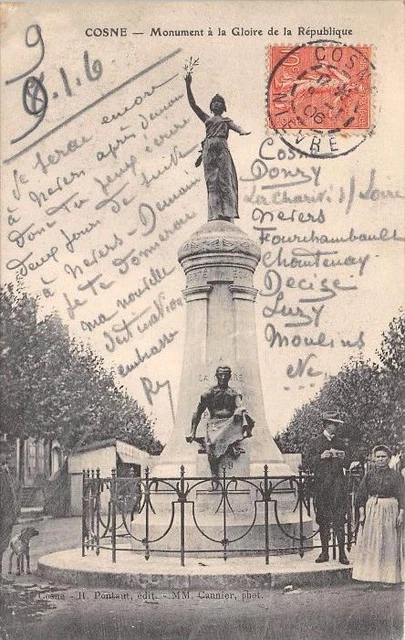 COSNE — Monument à la Gloire de la République
9
8.1.6
Je serai encore
à Nevers après demain
dont tu peux écrire
deux jours de suite
à Nevers - Demain
je te donnerai
ma nouvelle
destination
embrasse
Ry
COSNE
NIÈVRE
06
Cosne
Donzy
La Charité s/ Loire
Nevers
Fourchambault
Chantenay
Decize
Luzy
Moulins
LA
Cosne - H. Pontaut, édit. - MM. Cannier, phot.